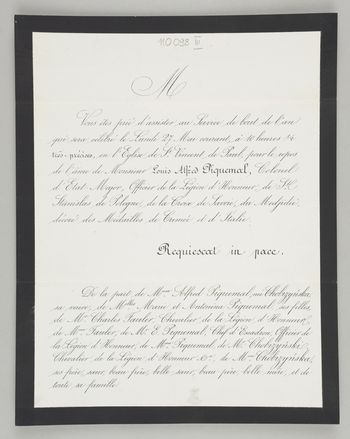 110098 III
M
Vous êtes prié d'assister au Service de bout de l'an
qui sera célébré le Lundi 27 Mai courant, à 10 heures 1/4
très-précises, en l'Eglise de St Vincent de Paul, pour le repos
de l'âme de Monsieur Louis Alfred Piquemal, Colonel
d'Etat-Major, Officier de la Légion d'Honneur, de St
Stanislas de Pologne, de la Croix de Savoie, du Medjidié,
décoré des Médailles de Crimée et d'Italie.
Requiescat in pace.
De la part de Mme Alfred Piquemal, née Chobrzyńska,
sa veuve, de Melles Marie et Antonine Piquemal, ses filles,
de Mr Charles Pauler, Chevalier de la Légion d'Honneur,
de Mme Pauler, de Mr E. Piquemal, Chef d'Escadron, Officier de
la Légion d'Honneur, de Mme Piquemal, de Mr Chobrzyński,
Chevalier de la Légion d'Honneur &ca, de Mme Chobrzyńska,
ses frère, sœur, beau frère, belle sœur, beau père, belle mère, et de
toute sa famille.